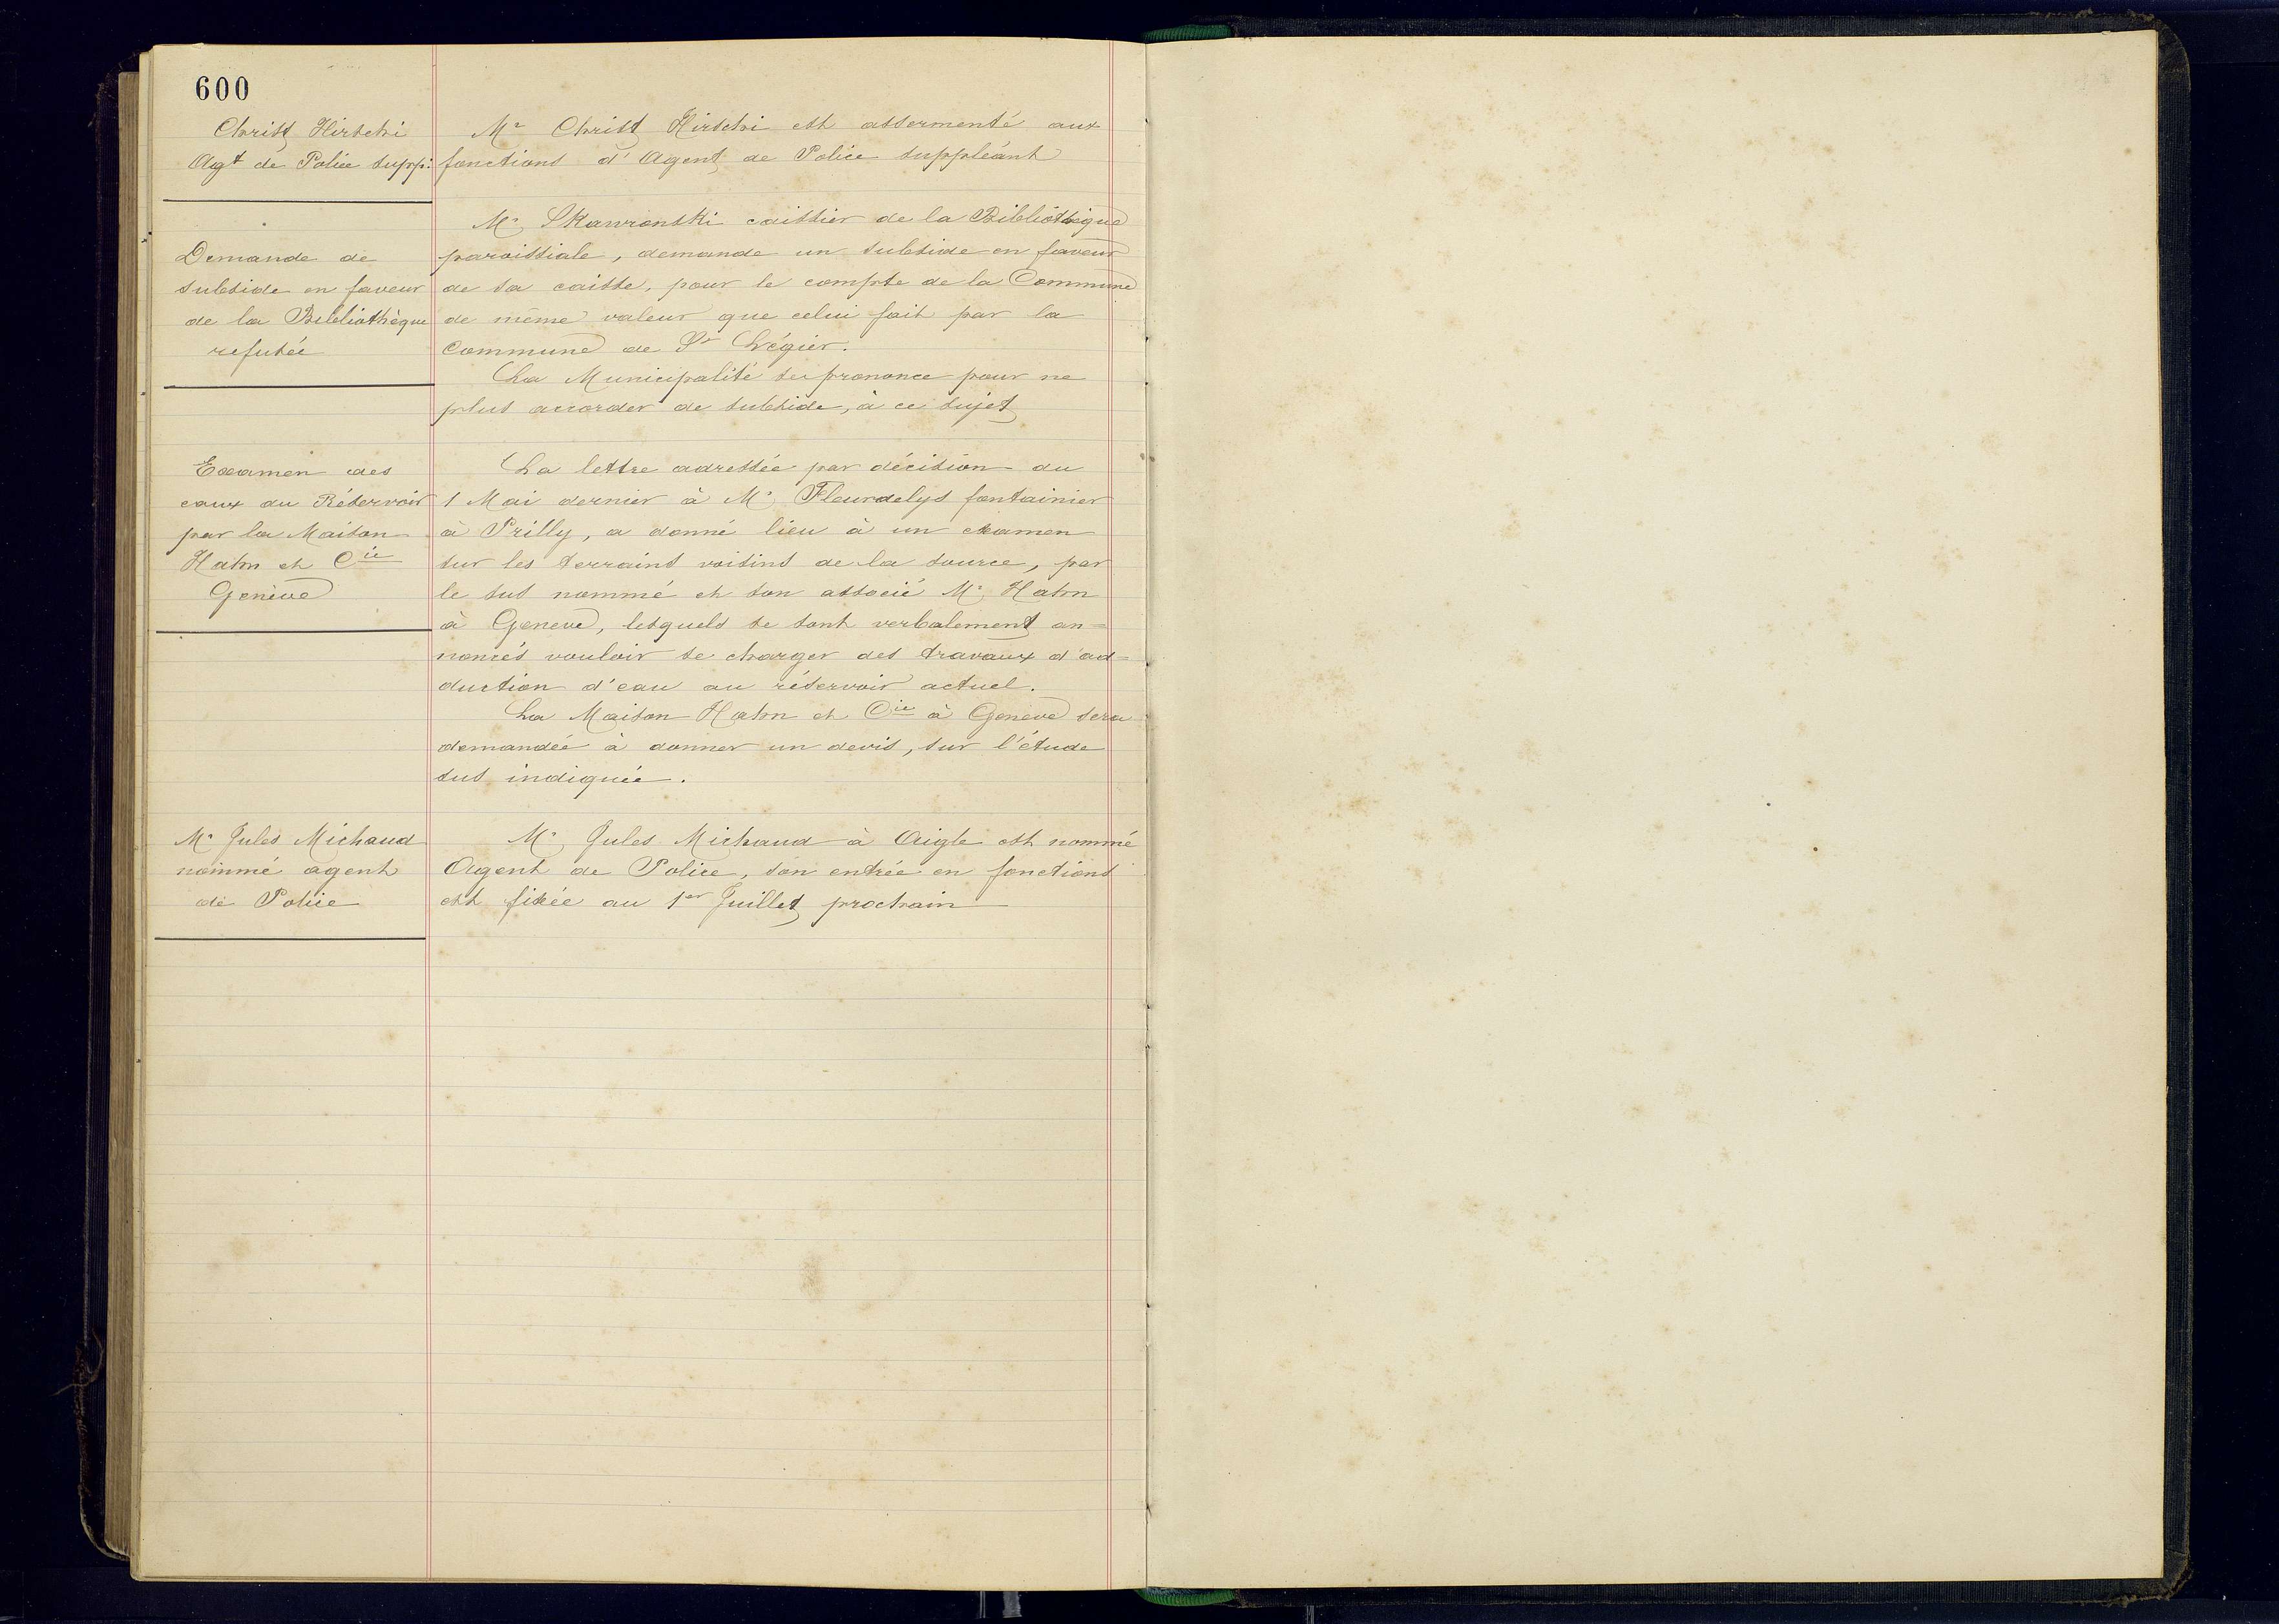 600
Christ Hirschi
Agt de Police supp:
Mr Christ Hirschi est assermenté aux
fonctions d'Agent de Police suppléant
Demande de
subside en faveur
de la Bibliothèque
refusée
Mr Skawronski caissier de la Bibliothèque
paroissiale, demande un subside en faveur
de sa caisse, pour le compte de la Commune
de même valeur que celui fait par la
Commune de St Légier.
La Municipalité se prononce pour ne
plus accorder de subside, à ce sujet
Examen des
eaux du Réservoir
par la Maison
Hahn et Cie
Genève
La lettre adressée par décision du
1 Mai dernier à Mr Fleurdelys fontainier
à Prilly, a donné lieu à un examen
sur les terrains voisins de la source, par
le sus nommé et son associé Mr Hahn
à Genève, lesquels se sont verbalement an=
noncés vouloir se charger des travaux d'ad=
duction d'eau au réservoir actuel.
La Maison Hahn et Cie à Genève sera
demandée à donner un devis, sur l'étude
sus indiquée.
Mr Jules Michaud
nommé agent
de Police
Mr Jules Michaud à Aigle est nommé
Agent de Police, son entrée en fonctions
est fixée au 1er Juillet prochain